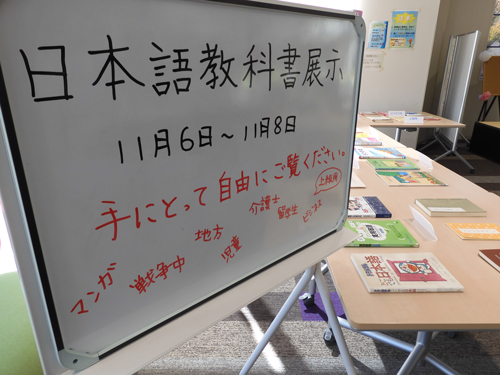 日本語教科書展示
11月6日～11月8日
手にとって自由にご覧ください。
マンガ
戦争中
地方
児童
介護士
留学生
ビジネス
日本語